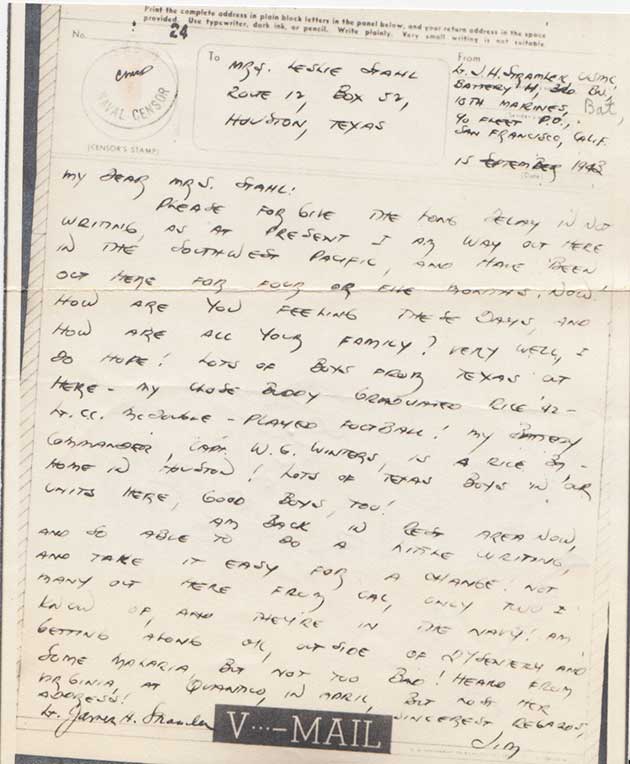 Print the complete address in plain block letters in the panel below, and your return address in the space
provided. Use typewriter, dark ink, or pencil. Write plainly. Very small writing is not suitable.
No. 24
NAVAL CENSOR
(CENSOR'S STAMP)
To
MRS. LESLIE STAHL
ROUTE 12, BOX 52,
HOUSTON, TEXAS
From
Lt. J. H. STRAMLER USMC
BATTERY H, 3RD BN.
10TH MARINES,
% FLEET P.O.,
SAN FRANCISCO, CALIF.
15 SEPTEMBER 1943
(Date)
MY DEAR MRS. STAHL:
PLEASE FORGIVE THE LONG DELAY IN NOT
WRITING, AS AT PRESENT I AM WAY OUT HERE
IN THE SOUTHWEST PACIFIC, AND HAVE BEEN
OUT HERE FOR FOUR OR FIVE MONTHS, NOW!
HOW ARE YOU FEELING THESE DAYS, AND
HOW ARE ALL YOUR FAMILY? VERY WELL, I
DO HOPE! LOTS OF BOYS FROM TEXAS OUT
HERE - MY CLOSE BUDDY GRADUATED RICE '42 -
PLAYED FOOTBALL! MY BATTERY
COMMANDER, CAPT. W. G. WINTERS, IS A RICE
HOME IN HOUSTON! LOTS OF TEXAS BOYS IN OUR
UNITS HERE, GOOD BOYS, TOO!
AM BACK IN REST AREA NOW,
AND SO ABLE TO DO A LITTLE WRITING,
AND TAKE IT EASY FOR A CHANGE! NOT
MANY OUT HERE FROM CAL, ONLY TWO I
KNOW OF, AND THEY'RE IN THE NAVY! AM
GETTING ALONG OK, OUTSIDE OF DYSENTERY AND
SOME MALARIA BUT NOT TOO BAD! HEARD FROM
VIRGINIA, AT QUANTICO, IN APRIL, BUT HER
ADDRESS!
SINCEREST REGARDS,
Lt. James H. Stramler
JIM
V···—MAIL